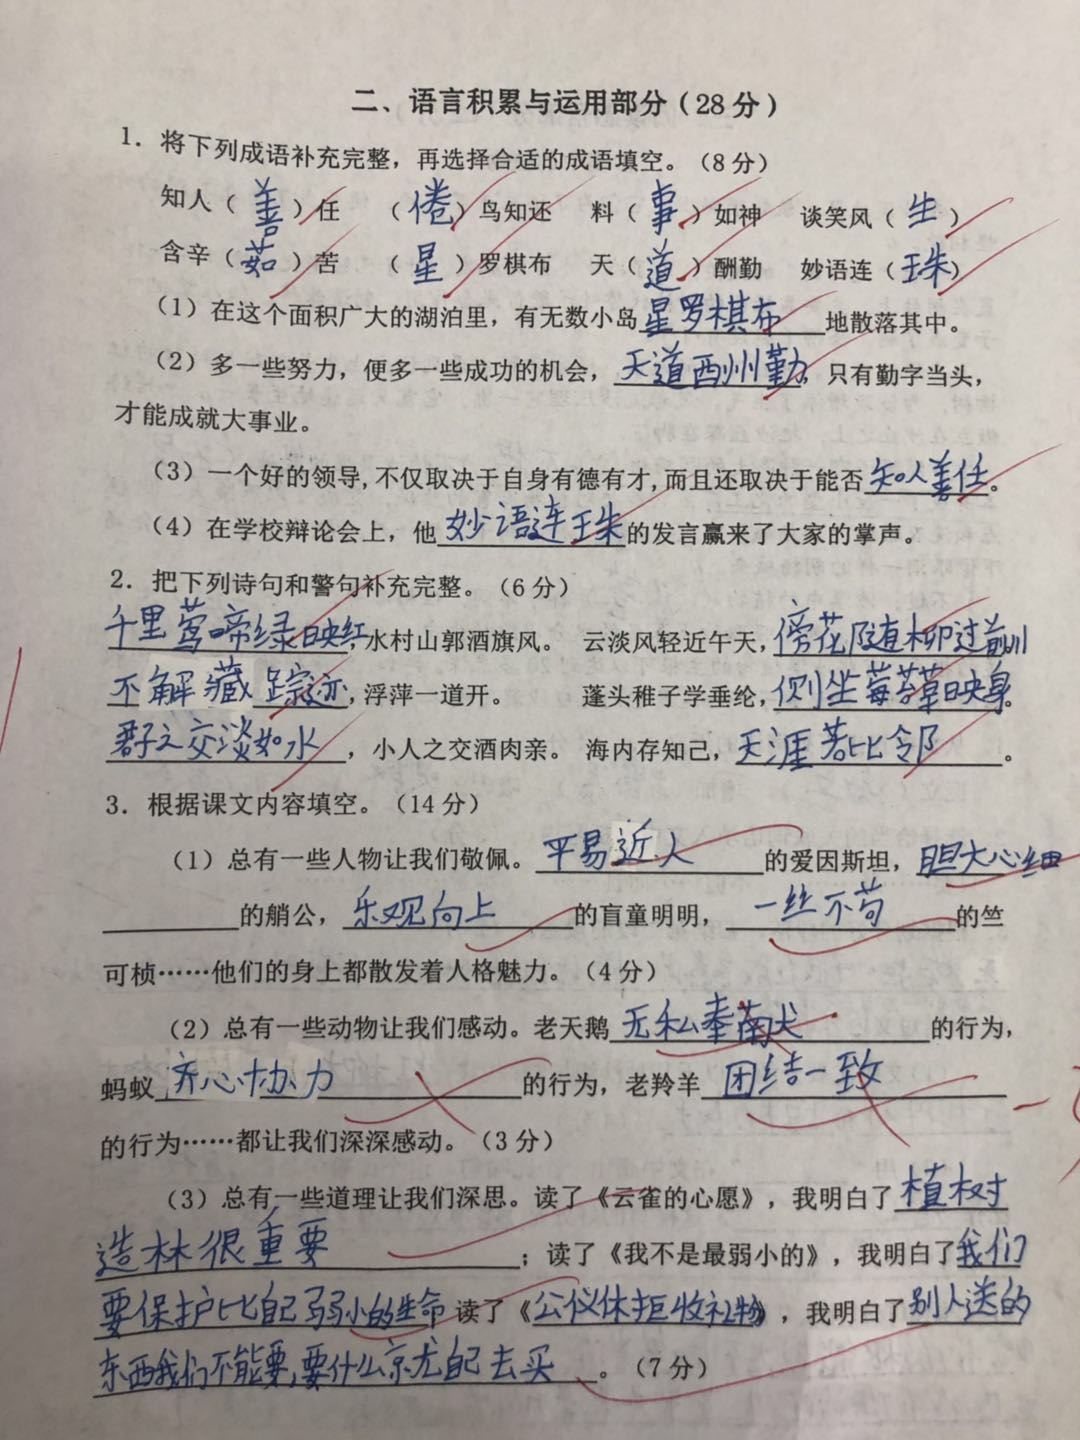 二、语言积累与运用部分（28分）
1. 将下列成语补充完整，再选择合适的成语填空。（8分）
知人（善）任 （倦）鸟知还 料（事）如神 谈笑风（生）
含辛（茹）苦 （星）罗棋布 天（道）酬勤 妙语连（珠）
（1）在这个面积广大的湖泊里，有无数小岛星罗棋布地散落其中。
（2）多一些努力，便多一些成功的机会，天道酬勤，只有勤字当头，
才能成就大事业。
（3）一个好的领导，不仅取决于自身有德有才，而且还取决于能否知人善任。
（4）在学校辩论会上，他妙语连珠的发言赢来了大家的掌声。
2. 把下列诗句和警句补充完整。（6分）
千里莺啼绿映红，水村山郭酒旗风。 云淡风轻近午天，傍花随柳过前川
不解藏踪迹，浮萍一道开。 蓬头稚子学垂纶，侧坐莓苔草映身。
君子之交淡如水，小人之交酒肉亲。 海内存知己，天涯若比邻。
3. 根据课文内容填空。（14分）
（1）总有一些人物让我们敬佩。平易近人的爱因斯坦，胆大心细
的艄公，乐观向上的盲童明明，一丝不苟的竺
可桢……他们的身上都散发着人格魅力。（4分）
（2）总有一些动物让我们感动。老天鹅无私奉献的行为，
蚂蚁齐心协力的行为，老羚羊团结一致
的行为……都让我们深深感动。（3分）
（3）总有一些道理让我们深思。读了《云雀的心愿》，我明白了植树
造林很重要；读了《我不是最弱小的》，我明白了我们
要保护比自己弱小的生命读了《公仪休拒收礼物》，我明白了别人送的
东西我们不能要，要什么京尤自己去买。（7分）